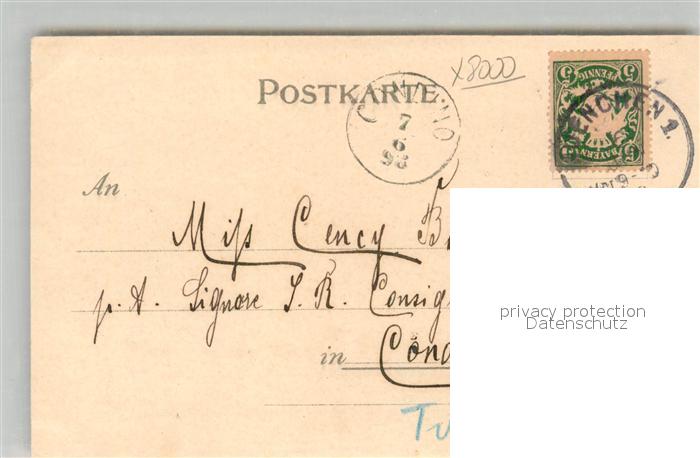 x8000
POSTKARTE
7
6
98
5 5
PFENNIG
BAYERN
5 5
MUENCHEN 1.
An
Miss Cency
p. A. Signore S. R. Consig
in
privacy protection
Datenschutz